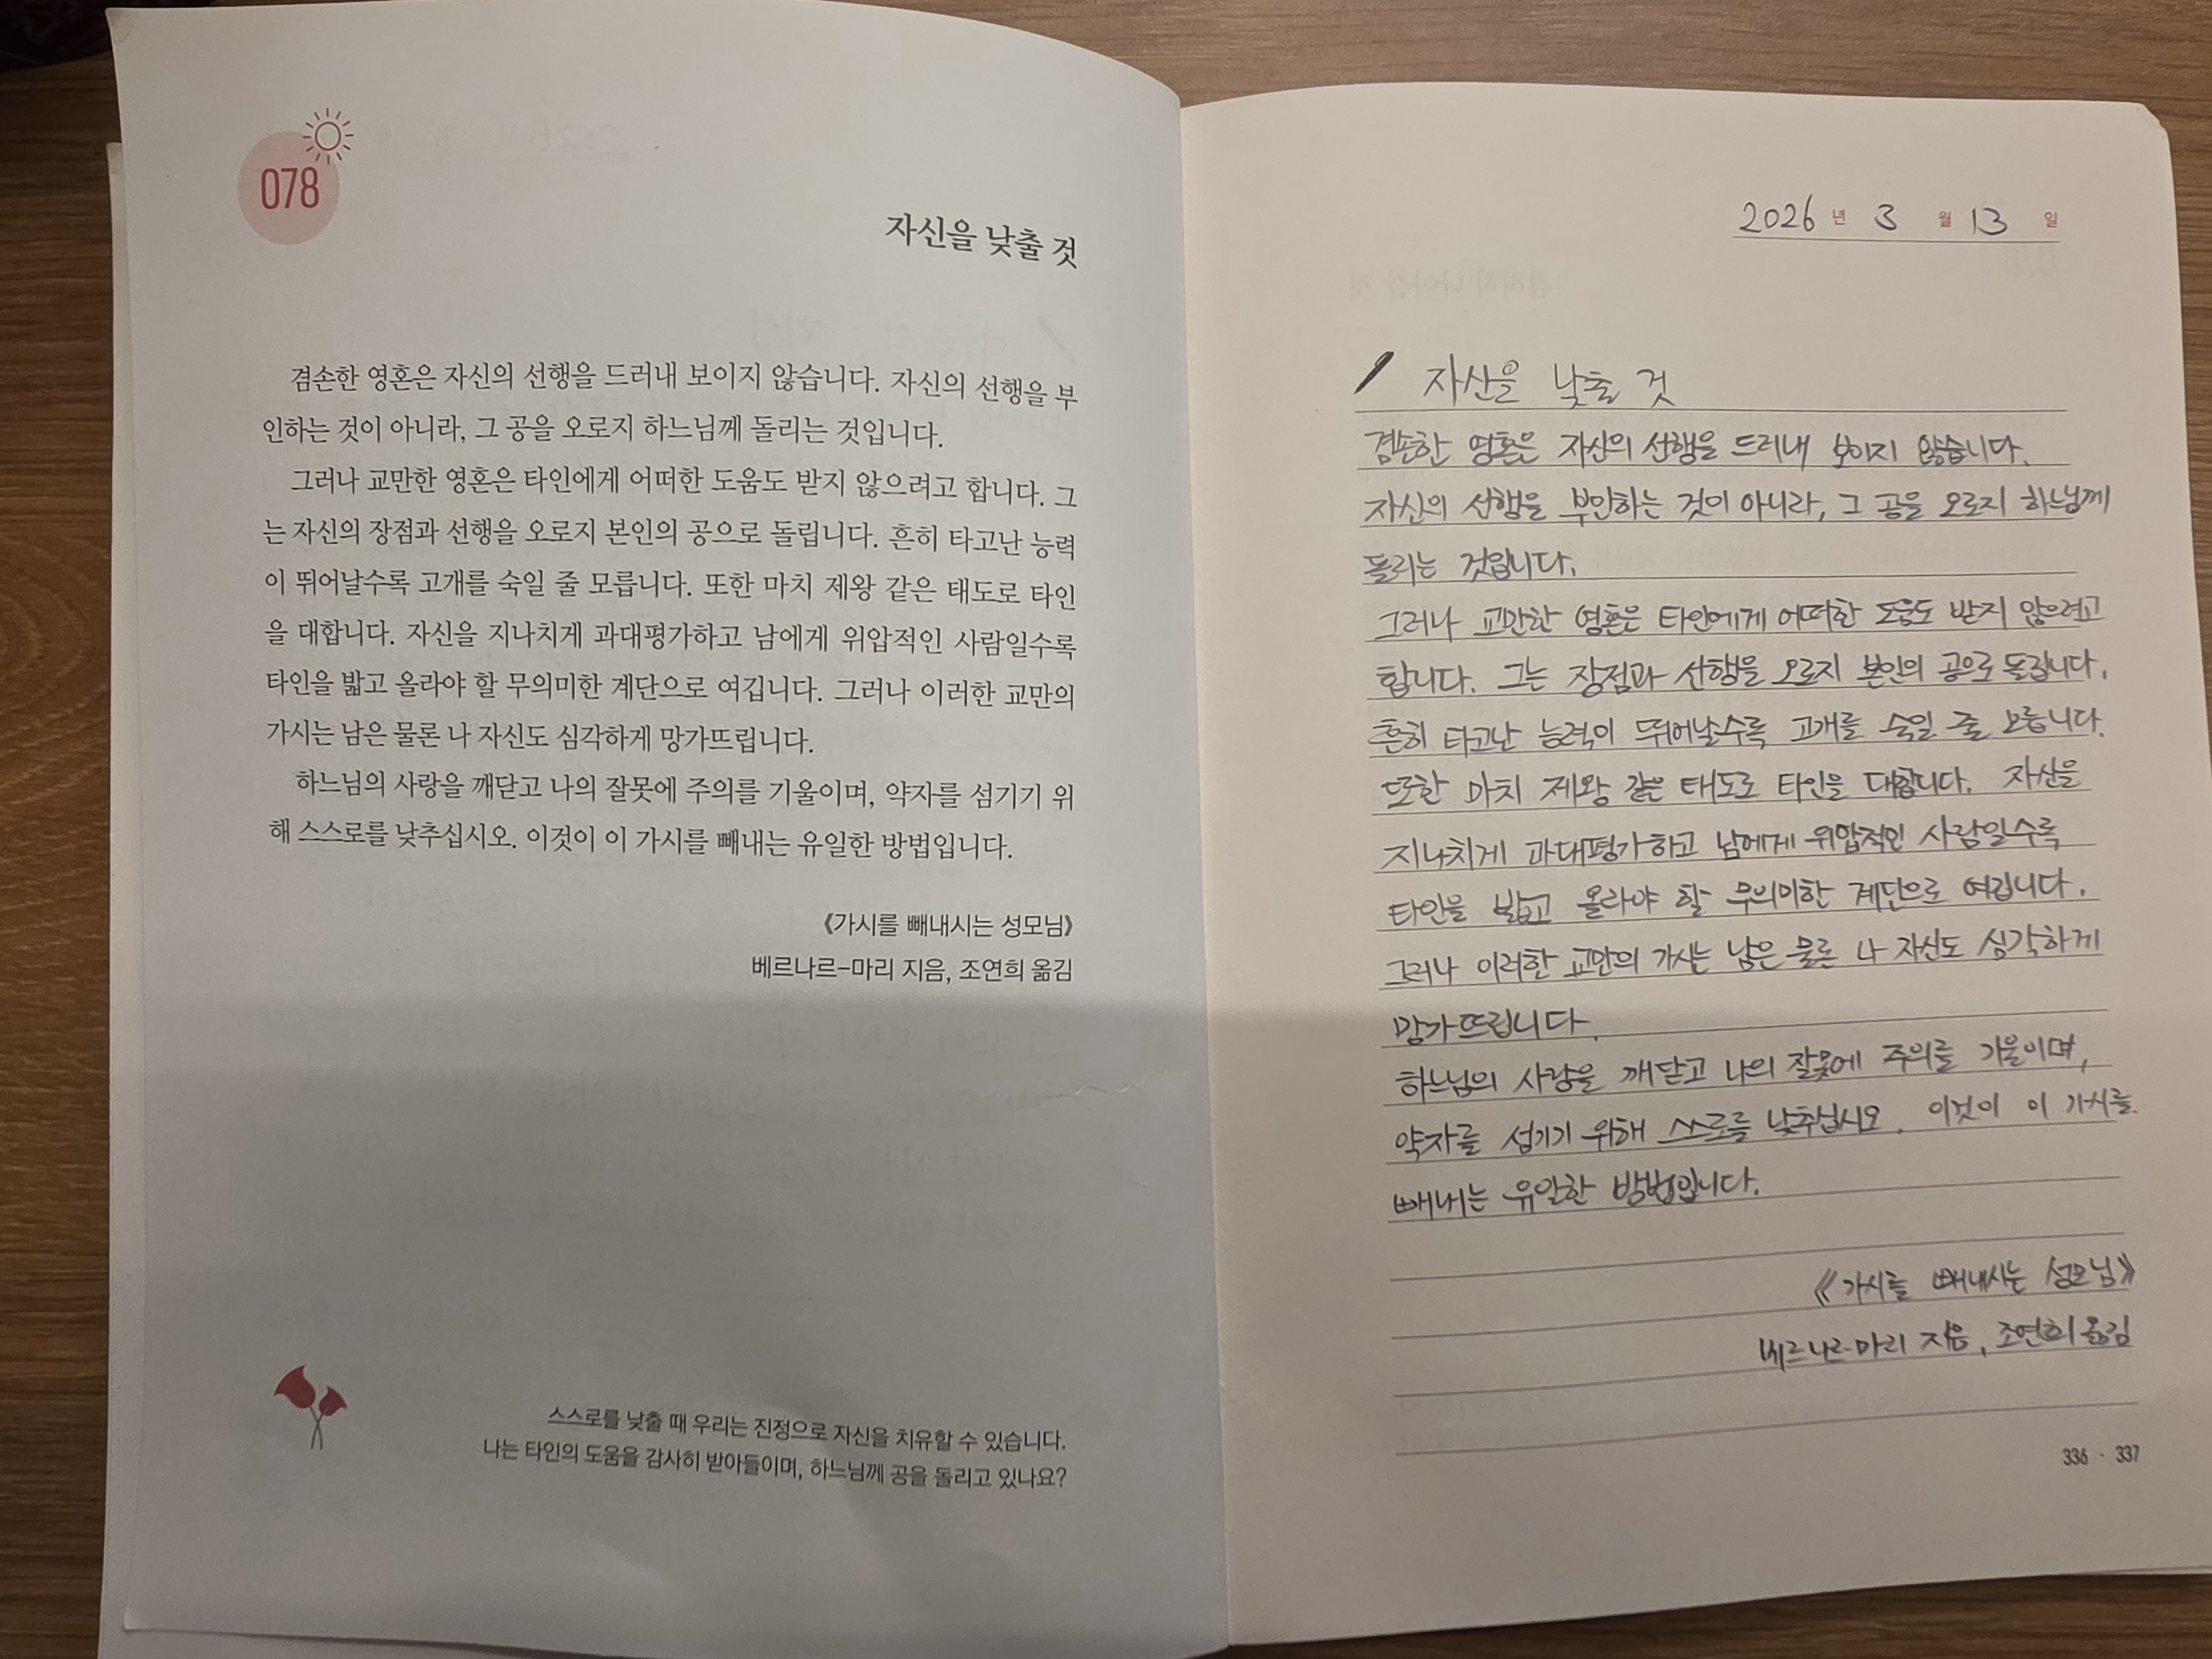 078
자신을 낮출 것
겸손한 영혼은 자신의 선행을 드러내 보이지 않습니다. 자신의 선행을 부
인하는 것이 아니라, 그 공을 오로지 하느님께 돌리는 것입니다.
그러나 교만한 영혼은 타인에게 어떠한 도움도 받지 않으려고 합니다. 그
는 자신의 장점과 선행을 오로지 본인의 공으로 돌립니다. 흔히 타고난 능력
이 뛰어날수록 고개를 숙일 줄 모릅니다. 또한 마치 제왕 같은 태도로 타인
을 대합니다. 자신을 지나치게 과대평가하고 남에게 위압적인 사람일수록
타인을 밟고 올라야 할 무의미한 계단으로 여깁니다. 그러나 이러한 교만의
가시는 남은 물론 나 자신도 심각하게 망가뜨립니다.
하느님의 사랑을 깨닫고 나의 잘못에 주의를 기울이며, 약자를 섬기기 위
해 스스로를 낮추십시오. 이것이 이 가시를 빼내는 유일한 방법입니다.
《가시를 빼내시는 성모님》
베르나르-마리 지음, 조연희 옮김
스스로를 낮출 때 우리는 진정으로 자신을 치유할 수 있습니다.
나는 타인의 도움을 감사히 받아들이며, 하느님께 공을 돌리고 있나요?
2026 년 3 월 13 일
자신을 낮출 것
겸손한 영혼은 자신의 선행을 드러내 보이지 않습니다.
자신의 선행을 부인하는 것이 아니라, 그 공을 오로지 하느님께
돌리는 것입니다.
그러나 교만한 영혼은 타인에게 어떠한 도움도 받지 않으려고
합니다. 그는 장점과 선행을 오로지 본인의 공으로 돌립니다.
흔히 타고난 능력이 뛰어날수록 고개를 숙일 줄 모릅니다.
또한 마치 제왕 같은 태도로 타인을 대합니다. 자신을
지나치게 과대평가하고 남에게 위압적인 사람일수록
타인을 밟고 올라야 할 무의미한 계단으로 여깁니다.
그러나 이러한 교만의 가시는 남은 물론 나 자신도 심각하게
망가뜨립니다.
하느님의 사랑을 깨닫고 나의 잘못에 주의를 기울이며,
약자를 섬기기 위해 스스로를 낮추십시오. 이것이 이 가시를
빼내는 유일한 방법입니다.
《가시를 빼내시는 성모님》
베르나르-마리 지음, 조연희 옮김
336 · 337